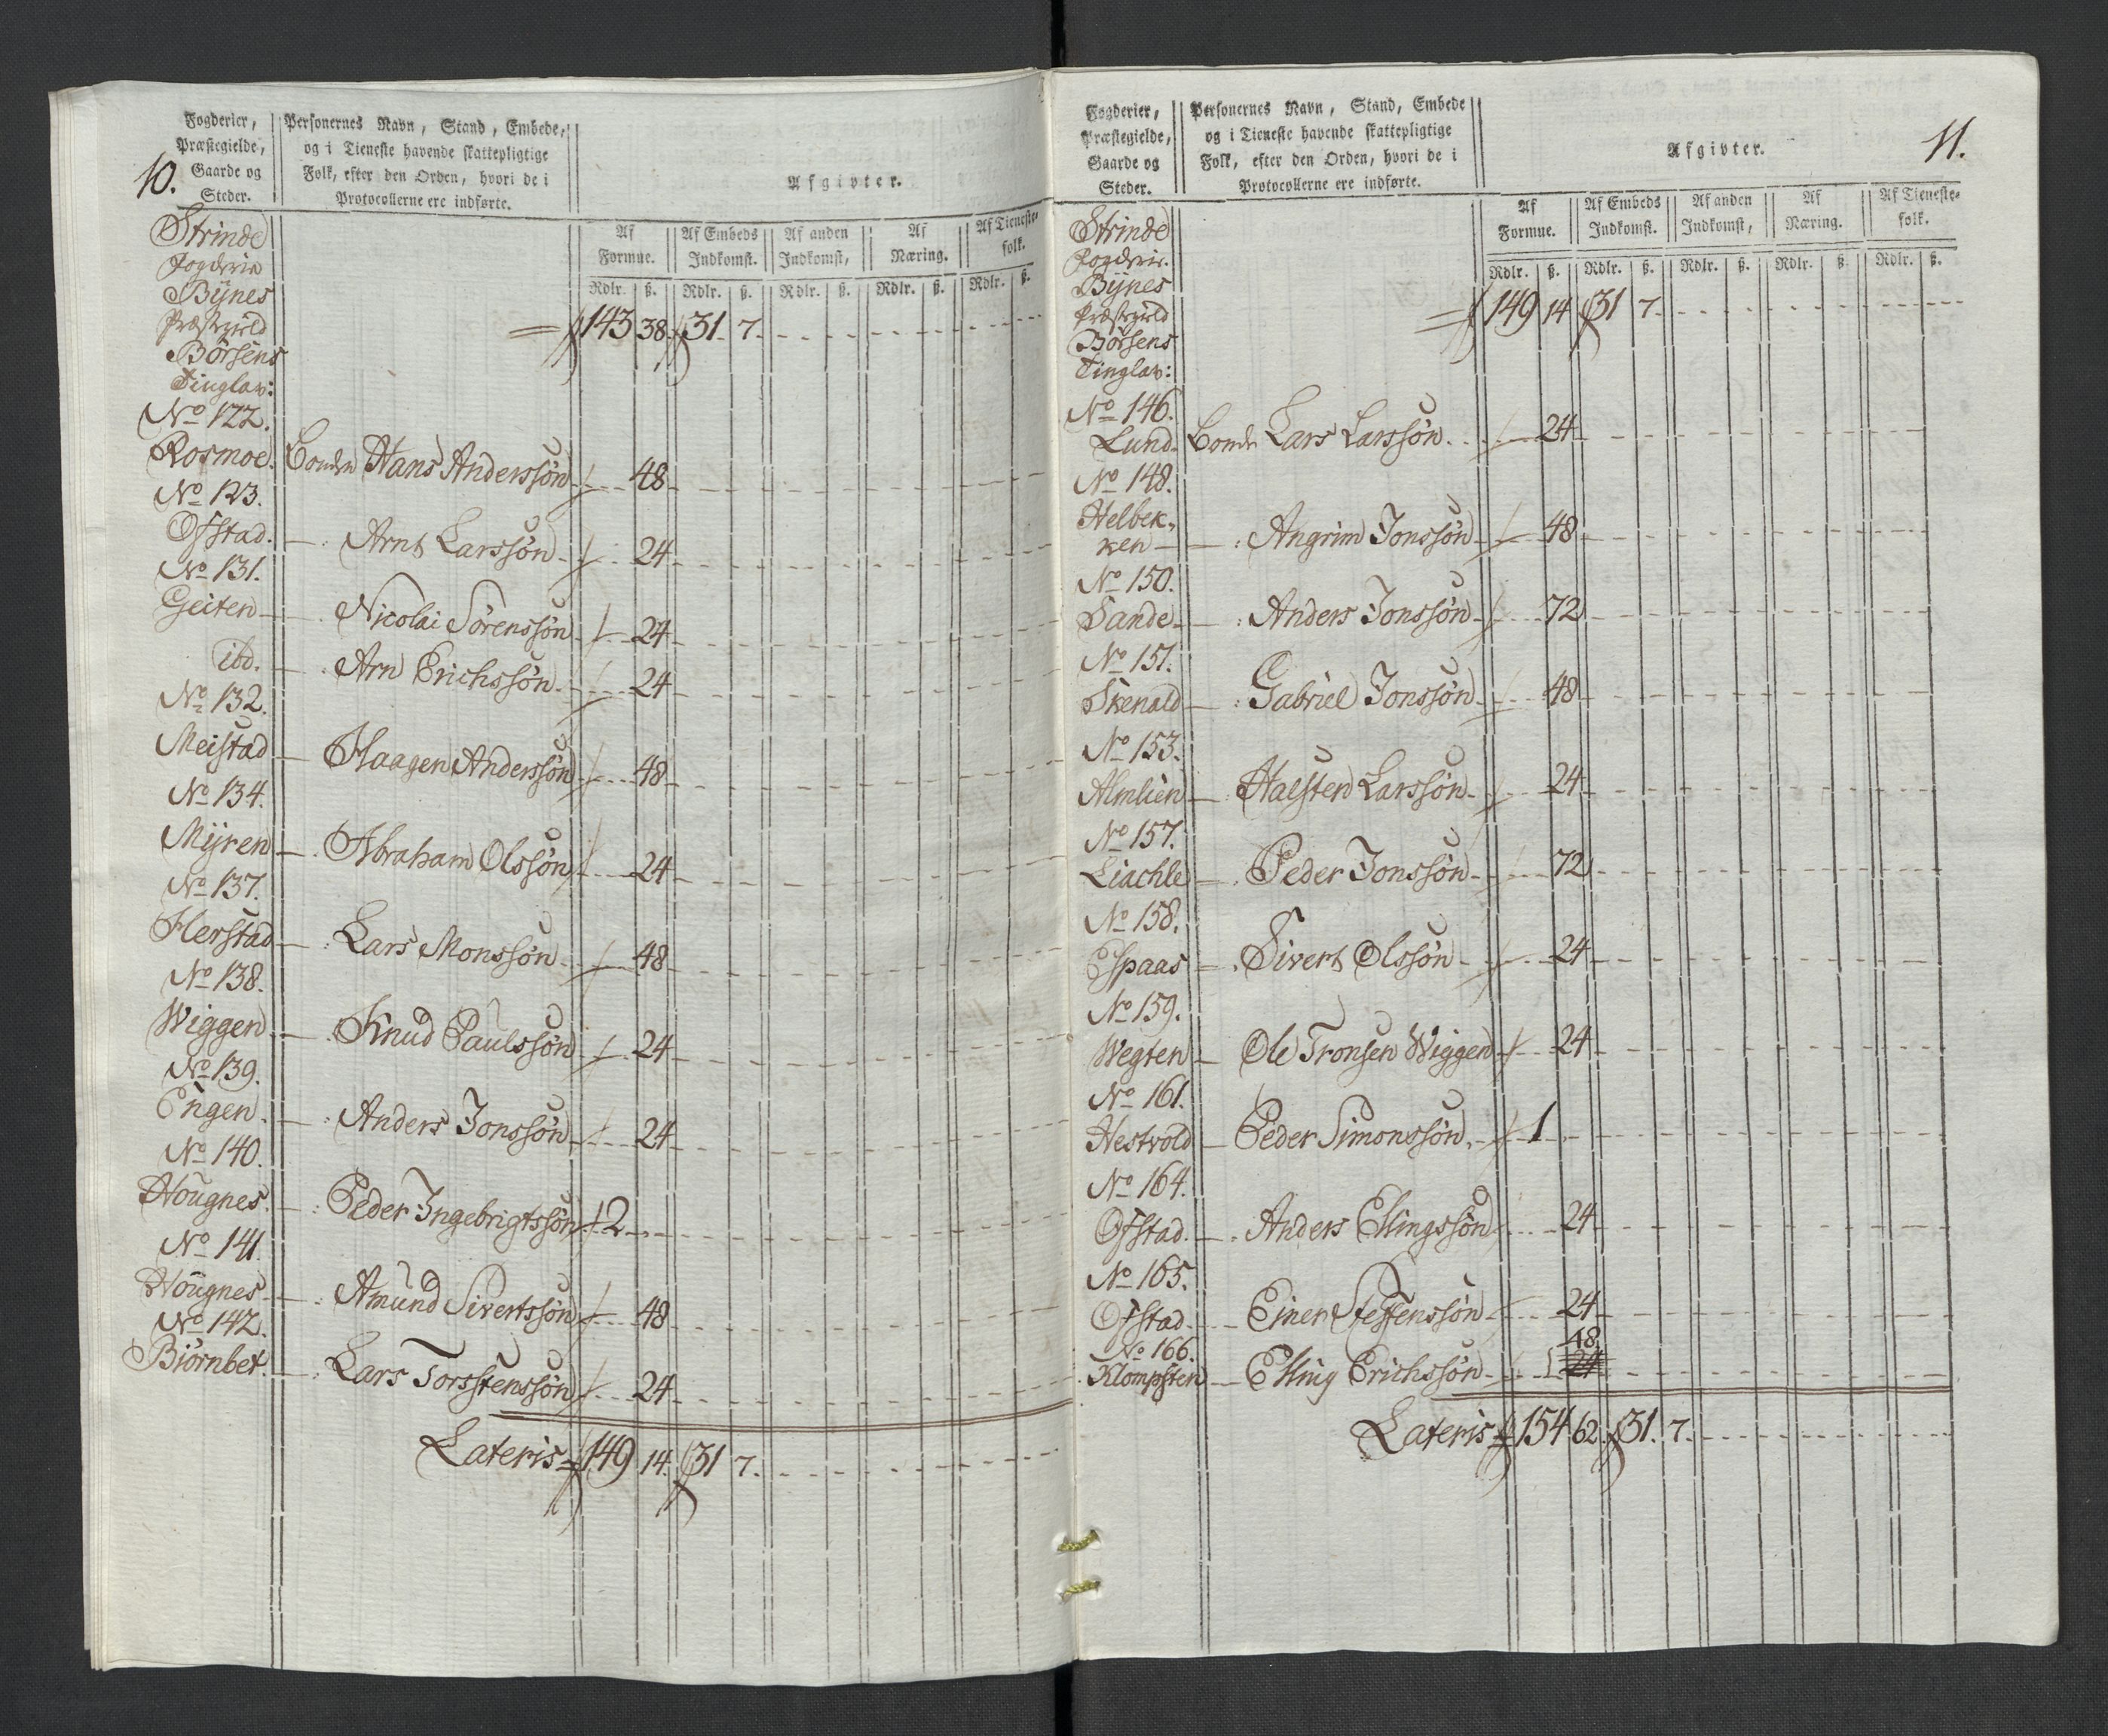 10.
Fogderier,
Præstegielde,
Gaarde og
Steder.
Personernes Navn, Stand, Embede,
og i Tieneste havende skattepligtige
Folk, efter den Orden, hvori de i
Protocollerne ere indførte.
Afgivter.
Af Formue. Af Embeds Indkomst. Af anden Indkomst, Af Næring. Af Tieneste-folk.
Rdlr. ß. Rdlr. ß. Rdlr. ß. Rdlr. ß. Rdlr. ß.
Strinde
Fogderie
Bÿnes
Præstegield
= 143 38. 31. 7.
Børsens
Tinglav:
No 122.
Rosmoe. Bonde Hans Anderssøn 48
No 123.
Ofstad. — : Arnt Larssøn 24
No 131.
Geiten — . Nicolai Sørenssøn 24
ibd. — : Arn Erichssøn 24
No 132.
Meistad — Haagen Anderssøn 48
No 134.
Mÿren — . Abraham Olssøn 24
No 137.
Herstad — : Lars Monssøn 48
No 138.
Wiggen — . Knud Paulssøn 24
No 139.
Engen. — : Anders Jonssøn 24
No 140.
Hougnes. — : Peder Ingebrigtssøn 2
No 141
Hougnes — : Amund Sivertssøn 48
No 142.
Biørnbet. — : Lars Torsstenssøn 24
Lateris = 149 14. 31 7.
11.
Fogderier,
Præstegielde,
Gaarde og
Steder.
Personernes Navn, Stand, Embede
og i Tieneste havende skattepligtige
Folk, efter den Orden, hvori de i
Protocollerne ere indførte.
Afgivter.
Af Formue. Af Embeds Indkomst. Af anden Indkomst, Af Næring. Af Tieneste-folk.
Rdlr. ß. Rdlr. ß. Rdlr. ß. Rdlr. ß. Rdlr. ß.
Strinde
Fogderie.
Bÿnes
Præstegield
= 149 14 31 7.
Børsens
Tinglav:
No 146.
Lund. Bonde Lars Larssøn. 24
No 148.
Helbek-
ken — — : Angrim Jonssøn 48
No 150.
Sande — : Anders Jonssøn 72
No 151.
Skenald — : Gabriel Jonssøn 48
No 153.
Almlien — : Halsten Larssøn 24
No 157.
Liachle — . Peder Jonssøn 72
No 158.
Espaas — . Sivert Olssøn 24
No 159.
Wegten — Ole Tronsen Wiggen 24
No 161.
Hestvold — Peder Simonssøn. 1
No 164.
Ofstad. — . Anders Ellingssøn 24
No 165.
Ofstad. — Einer Steffenssøn 24
No 166. 48
Klompsten — Elling Erichssøn 24
Lateris = 154 62. 31. 7.